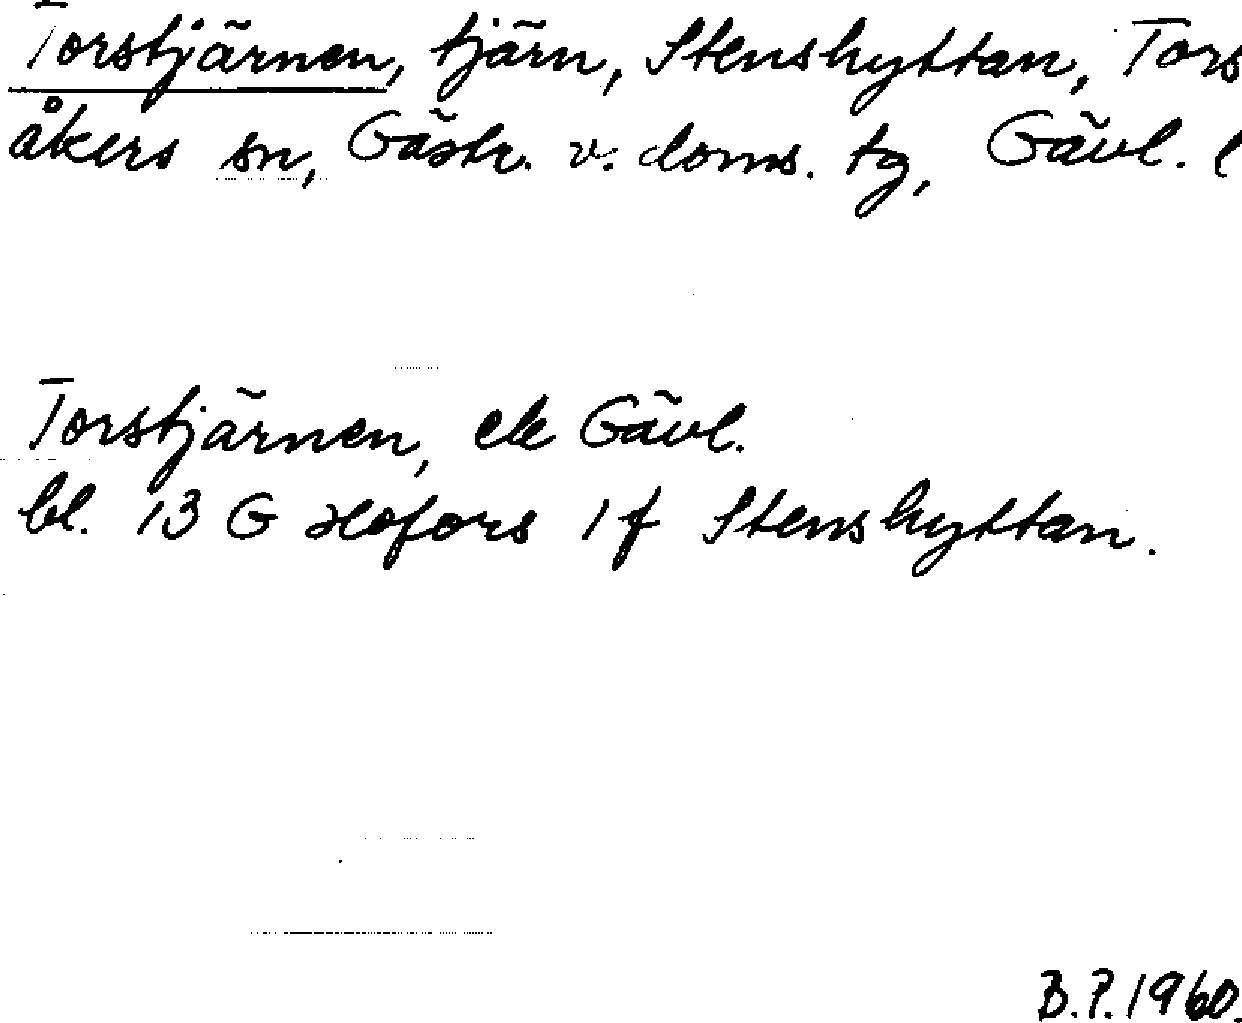 Torstjärnen, tjärn, Stenshyttan, Tors
åkers sn, Gästr. v. doms. tg, Gävl. l
Torstjärnen, ek Gävl.
bl. 13 G Hofors 1 f Stenshyttan.
B.P. 1960.